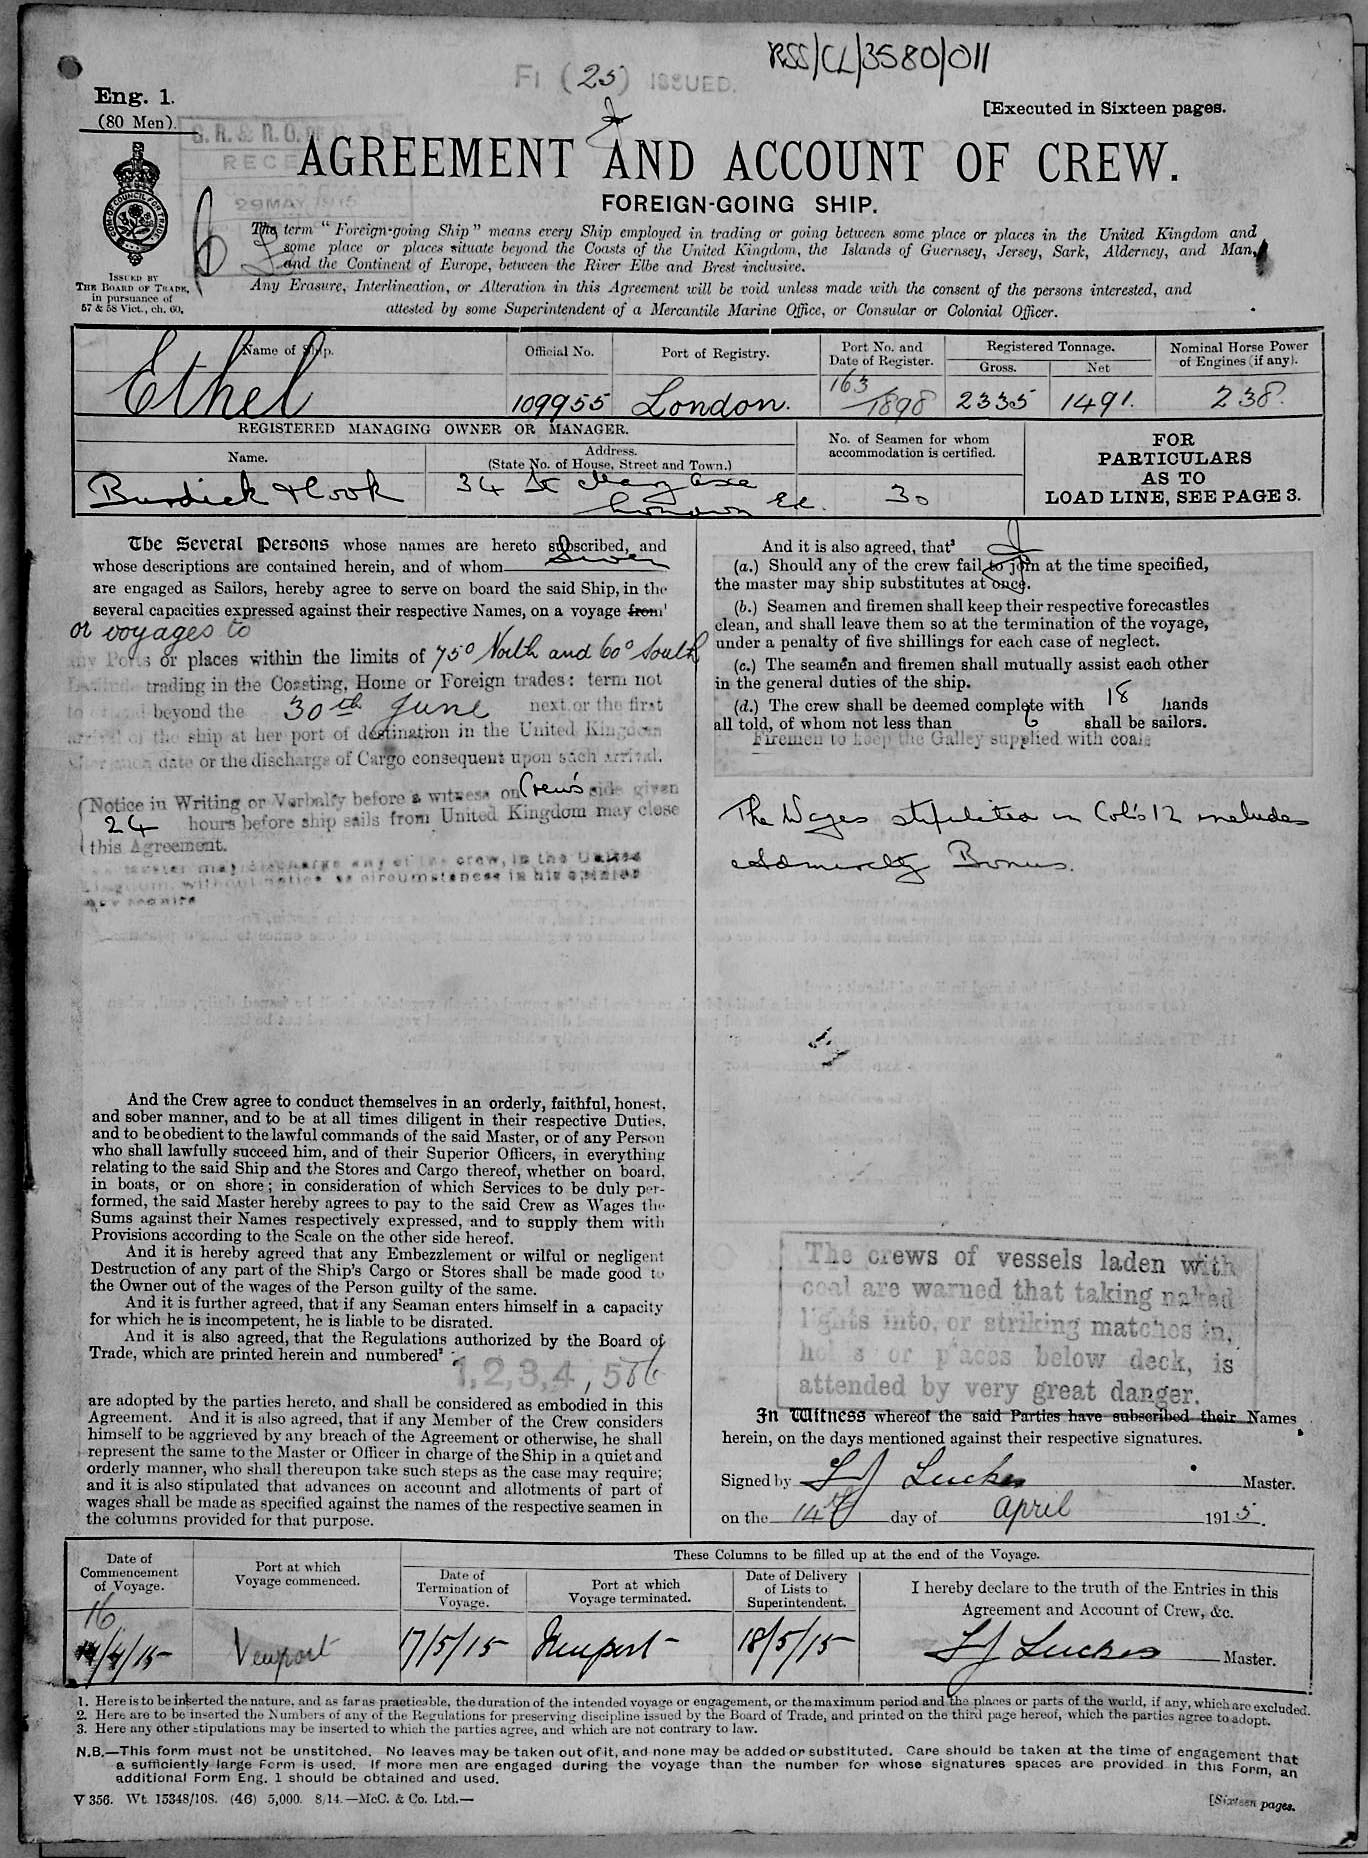 RSS/CL/3580/011
FI (25) ISSUED.
Eng. 1.
(80 Men).
[Executed in Sixteen pages.
RECE
29 MAY 1915
AGREEMENT AND ACCOUNT OF CREW.
FOREIGN-GOING SHIP.
6
The term "Foreign-going Ship" means every Ship employed in trading or going between some place or places in the United Kingdom and
some place or places situate beyond the Coasts of the United Kingdom, the Islands of Guernsey, Jersey, Sark, Alderney, and Man,
and the Continent of Europe, between the River Elbe and Brest inclusive.
Any Erasure, Interlineation, or Alteration in this Agreement will be void unless made with the consent of the persons interested, and
attested by some Superintendent of a Mercantile Marine Office, or Consular or Colonial Officer.
ISSUED BY
THE BOARD OF TRADE,
in pursuance of
57 & 58 Vict., ch. 60.
Name of Ship. Official No. Port of Registry. Port No. and Date of Register. Registered Tonnage. Gross. Net Nominal Horse Power of Engines (if any).
Ethel 109955 London. 163/1898 2335 1491. 238.
REGISTERED MANAGING OWNER OR MANAGER.
Name. Address. (State No. of House, Street and Town.) No. of Seamen for whom accommodation is certified.
Burdick & Cook 34 St Mary Axe London E.C. 30
FOR
PARTICULARS
AS TO
LOAD LINE, SEE PAGE 3.
The Several Persons whose names are hereto subscribed, and
whose descriptions are contained herein, and of whom Seven
are engaged as Sailors, hereby agree to serve on board the said Ship, in the
several capacities expressed against their respective Names, on a voyage from¹
or voyages to
any Ports or places within the limits of 75° North and 60° South
trading in the Coasting, Home or Foreign trades: term not
to extend beyond the 30th June next or the first
arrival of the ship at her port of destination in the United Kingdom
after such date or the discharge of Cargo consequent upon such arrival.
(Notice in Writing or Verbally before a witness on Crew's side given
24 hours before ship sails from United Kingdom may close
this Agreement.
master may discharge any of the crew, in the United
Kingdom, without notice as circumstances in his opinion
may require
And the Crew agree to conduct themselves in an orderly, faithful, honest,
and sober manner, and to be at all times diligent in their respective Duties,
and to be obedient to the lawful commands of the said Master, or of any Person
who shall lawfully succeed him, and of their Superior Officers, in everything
relating to the said Ship and the Stores and Cargo thereof, whether on board,
in boats, or on shore; in consideration of which Services to be duly per-
formed, the said Master hereby agrees to pay to the said Crew as Wages the
Sums against their Names respectively expressed, and to supply them with
Provisions according to the Scale on the other side hereof.
And it is hereby agreed that any Embezzlement or wilful or negligent
Destruction of any part of the Ship's Cargo or Stores shall be made good to
the Owner out of the wages of the Person guilty of the same.
And it is further agreed, that if any Seaman enters himself in a capacity
for which he is incompetent, he is liable to be disrated.
And it is also agreed, that the Regulations authorized by the Board of
Trade, which are printed herein and numbered²
1, 2, 3, 4, 5 & 6
are adopted by the parties hereto, and shall be considered as embodied in this
Agreement. And it is also agreed, that if any Member of the Crew considers
himself to be aggrieved by any breach of the Agreement or otherwise, he shall
represent the same to the Master or Officer in charge of the Ship in a quiet and
orderly manner, who shall thereupon take such steps as the case may require;
and it is also stipulated that advances on account and allotments of part of
wages shall be made as specified against the names of the respective seamen in
the columns provided for that purpose.
And it is also agreed, that³
(a.) Should any of the crew fail to join at the time specified,
the master may ship substitutes at once.
(b.) Seamen and firemen shall keep their respective forecastles
clean, and shall leave them so at the termination of the voyage,
under a penalty of five shillings for each case of neglect.
(c.) The seamen and firemen shall mutually assist each other
in the general duties of the ship.
(d.) The crew shall be deemed complete with 18 hands
all told, of whom not less than 6 shall be sailors.
Firemen to keep the Galley supplied with coals
The Wages stipulated in Col's 12 includes
Admiralty Bonus.
The crews of vessels laden with
coal are warned that taking naked
lights into, or striking matches in,
holds or places below deck, is
attended by very great danger.
In Witness whereof the said Parties have subscribed their Names
herein, on the days mentioned against their respective signatures.
Signed by L J Luckes Master.
on the 14th day of April 1915.
These Columns to be filled up at the end of the Voyage.
Date of Commencement of Voyage. Port at which Voyage commenced. Date of Termination of Voyage. Port at which Voyage terminated. Date of Delivery of Lists to Superintendent. I hereby declare to the truth of the Entries in this Agreement and Account of Crew, &c.
16/4/15 Newport 17/5/15 Newport 18/5/15 L J Luckes Master.
1. Here is to be inserted the nature, and as far as practicable, the duration of the intended voyage or engagement, or the maximum period and the places or parts of the world, if any, which are excluded.
2. Here are to be inserted the Numbers of any of the Regulations for preserving discipline issued by the Board of Trade, and printed on the third page hereof, which the parties agree to adopt.
3. Here any other stipulations may be inserted to which the parties agree, and which are not contrary to law.
N.B.—This form must not be unstitched. No leaves may be taken out of it, and none may be added or substituted. Care should be taken at the time of engagement that
a sufficiently large Form is used. If more men are engaged during the voyage than the number for whose signatures spaces are provided in this Form, an
additional Form Eng. 1 should be obtained and used.
V 356. Wt. 15348/108. (46) 5,000. 8/14.—McC. & Co. Ltd.—
[Sixteen pages.